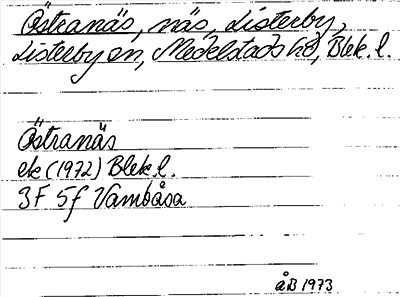 Östranäs, näs, Listerby,
Listerby sn, Medelstads hd, Blek. l.
Östranäs
ek (1972) Blek l.
3F 5f Vambåsa
åB 1973